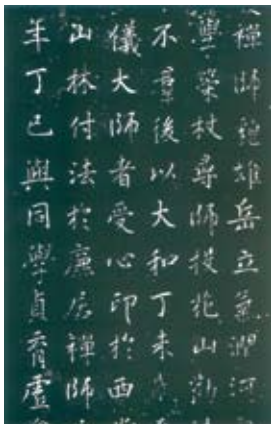 禪師貌雄岳立氣潤河
學策杖尋師投花山勸
不羣後以大和丁未歲
儀大師者受心印於西堂
山林付法於廉居禪師
年丁巳與同學貞育虛